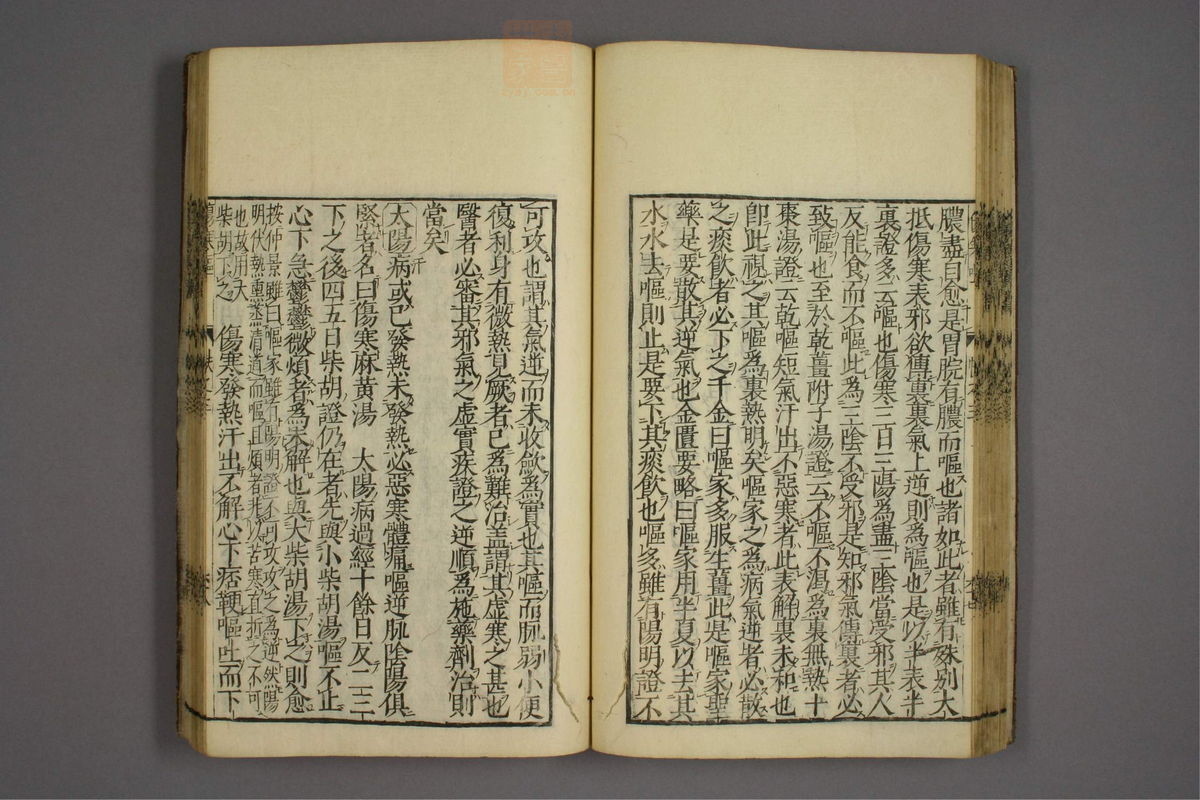 膿盡自愈是胃脘有膿而嘔也諸如此者雖有殊別大
抵傷寒表邪欲傳裏裏氣上逆則為嘔也是以半表半
裏證多云嘔也傷寒三日三陽為盡三陰當受邪其人
反能食而不嘔此為三陰不受邪是知邪氣傳裏者必
致嘔也至於乾薑附子湯證云不嘔不渴為裏無熱十
棗湯證云乾嘔短氣汗出不惡寒者此表解裏未和也
即此視之其嘔為裏熱明矣嘔家之為病氣逆者必散
之痰飲者必下之千金曰嘔家多服生薑此是嘔家聖
藥是要散其逆氣也金匱要略曰嘔家用半夏以去其
水水去嘔則止是要下其痰飲也嘔多雖有陽明證不
可攻也謂其氣逆而未收斂為實也其嘔而脉弱小便
復利身有微熱見厥者已為難治蓋謂其虛寒之甚也
醫者必審其邪氣之虛實疾證之逆順為施藥劑治則
當矣
太陽病或已發熱未發熱必惡寒體痛嘔逆脉陰陽俱
緊者名曰傷寒麻黃湯　太陽病過經十餘日反二三
下之後四五日柴胡證仍在者先與小柴胡湯嘔不止
心下急鬱鬱微煩者為未解也與大柴胡湯下之則愈
按仲景雖曰嘔家雖有陽明證不可攻攻之為逆然陽
明伏熱熏蒸清道而嘔且煩者非以苦寒宜折之不可
也故用大
柴胡下之　傷寒發熱汗出不解心下痞鞕嘔吐而下